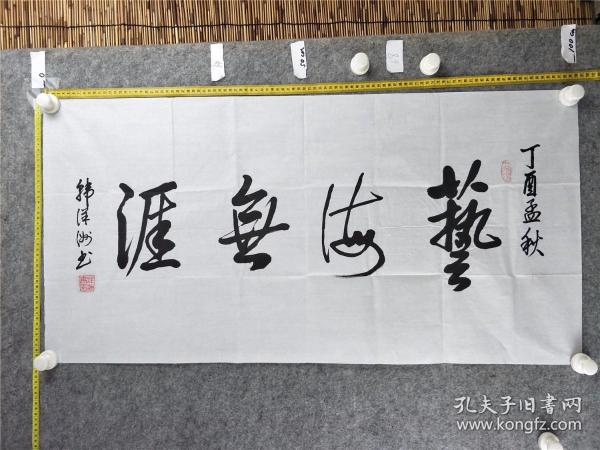 丁酉孟秋
藝海無涯
韩洋洲书
孔夫子旧书网
www.kongfz.com